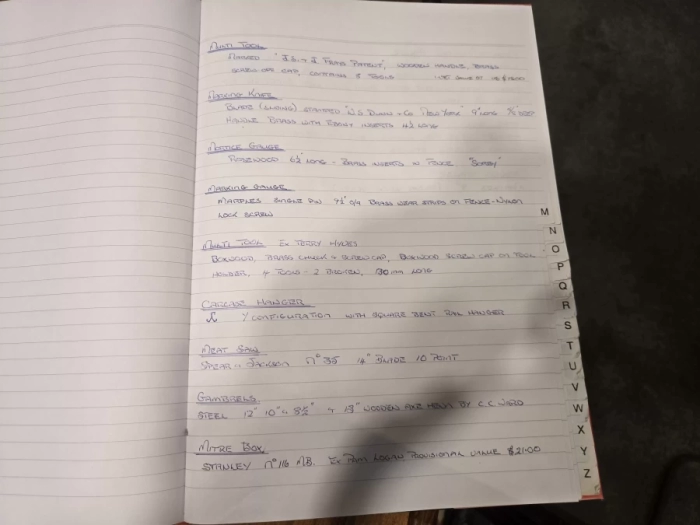 MULTI TOOL
MARKED "J.S...& J. FRAYS PATENT", WOODEN HANDLE, BRASS
SCREW OFF CAP, CONTAINING 8 TOOLS
MARKING KNIFE
BLADE STAMPED & CO. NEW YORK" 9" LONG
HANDLE BRASS WITH EBONY INSERTS 4½" LONG
MORTICE GAUGE
ROSEWOOD 6½" LONG - BRASS INSERTS IN FENCE
MARKING GAUGE
MARPLES SINGLE PIN 7½" O/A BRASS WEAR STRIPS ON FENCE - NYLON
LOCK SCREW
MULTI TOOL Ex TERRY HYNES
BOXWOOD, BRASS CHUCK & SCREW CAP, BOXWOOD SCREW CAP ON TOOL
HOLDER, 4 TOOLS - 2 BROKEN, 130mm LONG
CARCASS HANGER
CONFIGURATION WITH SQUARE BENT RAIL HANGER
MEAT SAW
SPEAR & JACKSON Nº 35 14" BLADE 10 POINT
GAMBRELS
STEEL 12" 10" & 8½" & 13" WOODEN BY C.C WARD
MITRE BOX
STANLEY Nº 116 M.B. Ex PAM LOGAN PROVISIONAL VALUE $21.00
M
N
O
P
Q
R
S
T
U
V
W
X
Y
Z